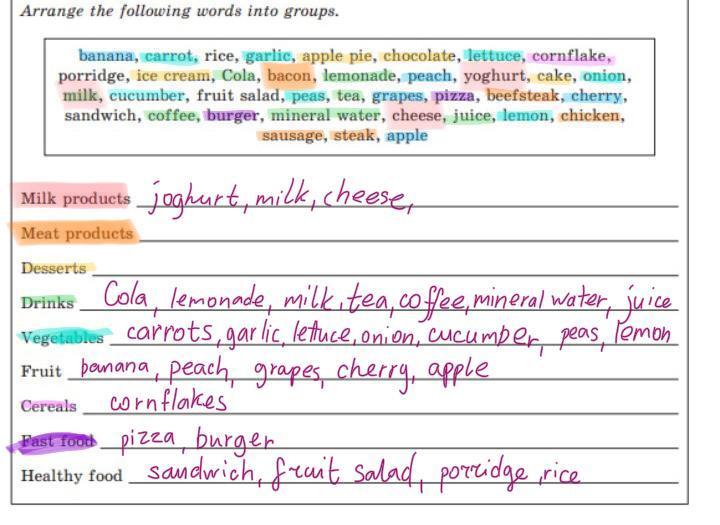 Arrange the following words into groups.
banana, carrot, rice, garlic, apple pie, chocolate, lettuce, cornflake,
porridge, ice cream, Cola, bacon, lemonade, peach, yoghurt, cake, onion,
milk, cucumber, fruit salad, peas, tea, grapes, pizza, beefsteak, cherry,
sandwich, coffee, burger, mineral water, cheese, juice, lemon, chicken,
sausage, steak, apple
Milk products joghurt, milk, cheese,
Meat products
Desserts
Drinks Cola, lemonade, milk, tea, coffee, mineral water, juice
Vegetables carrots, garlic, lettuce, onion, cucumber, peas, lemon
Fruit banana, peach, grapes, cherry, apple
Cereals cornflakes
Fast food pizza, burger
Healthy food sandwich, fruit salad, porridge, rice